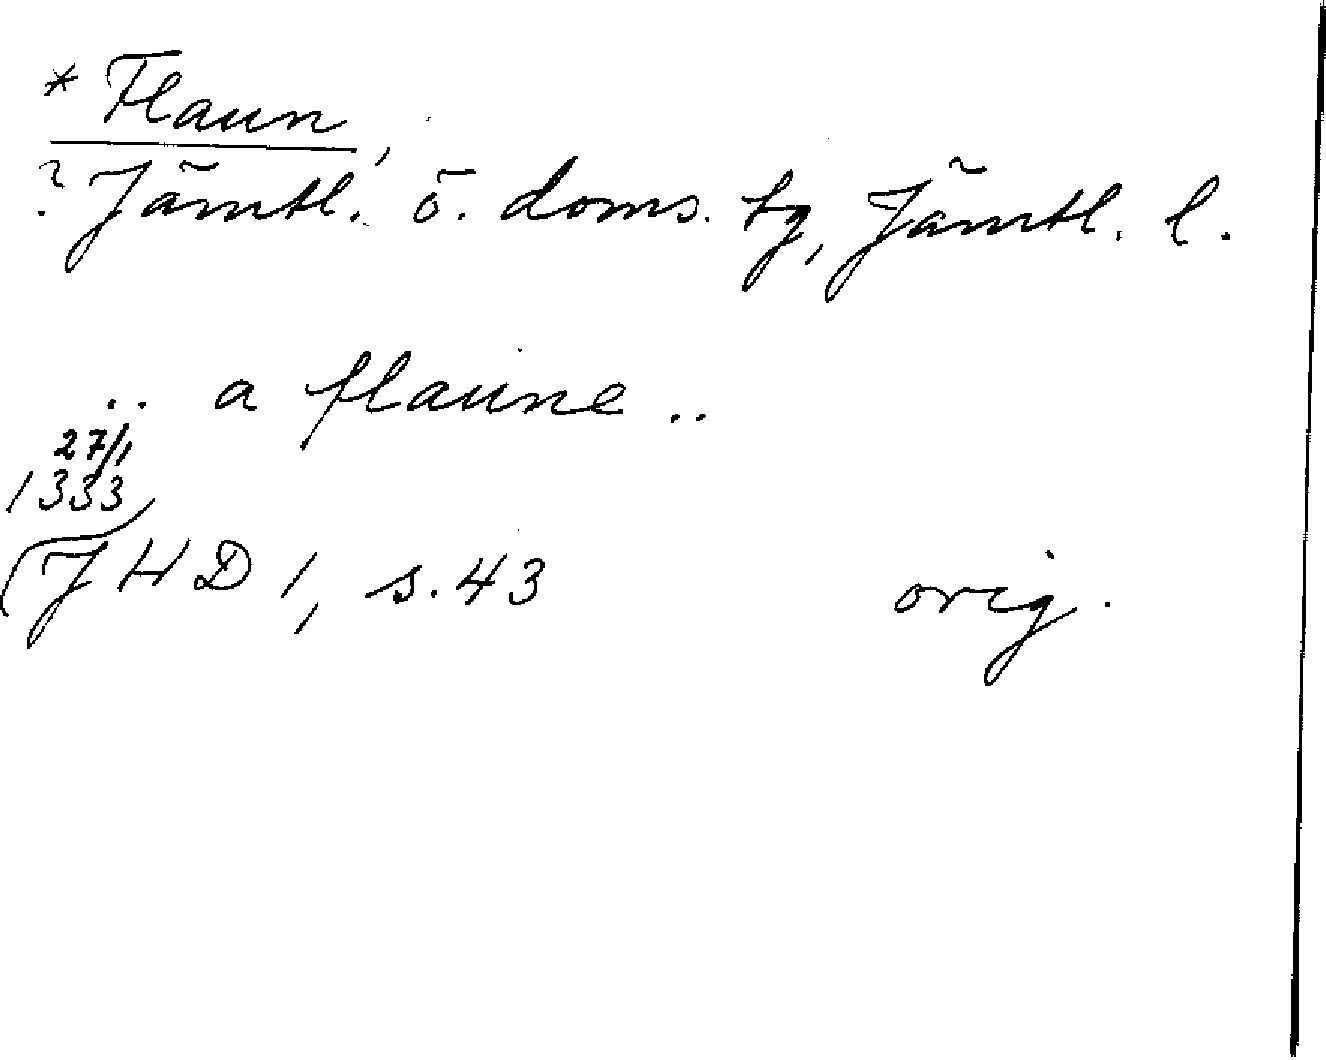 * Flaun,
? Jämtl. ö. doms. tg, Jämtl. l.
.. a flaune ..
27/1
1333
JHD 1, s. 43 orig.